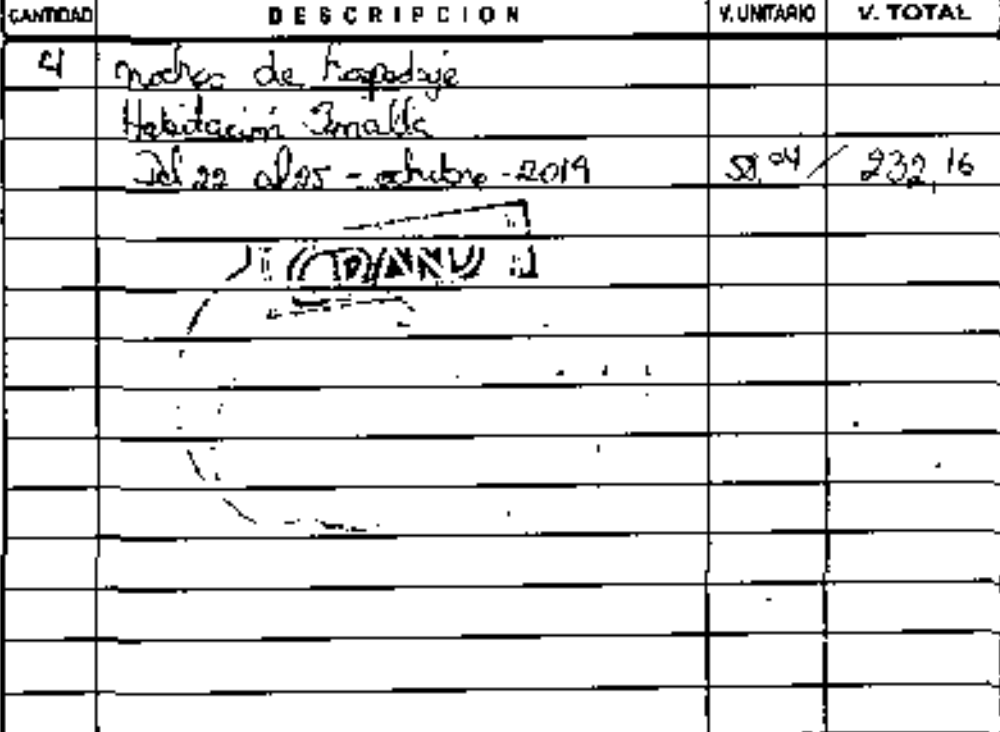 CANTIDAD DESCRIPCION V. UNITARIO V. TOTAL
4 noches de hospedaje
Habitación
Del 22 al 25 - octubre - 2019 58,04 / 232,16